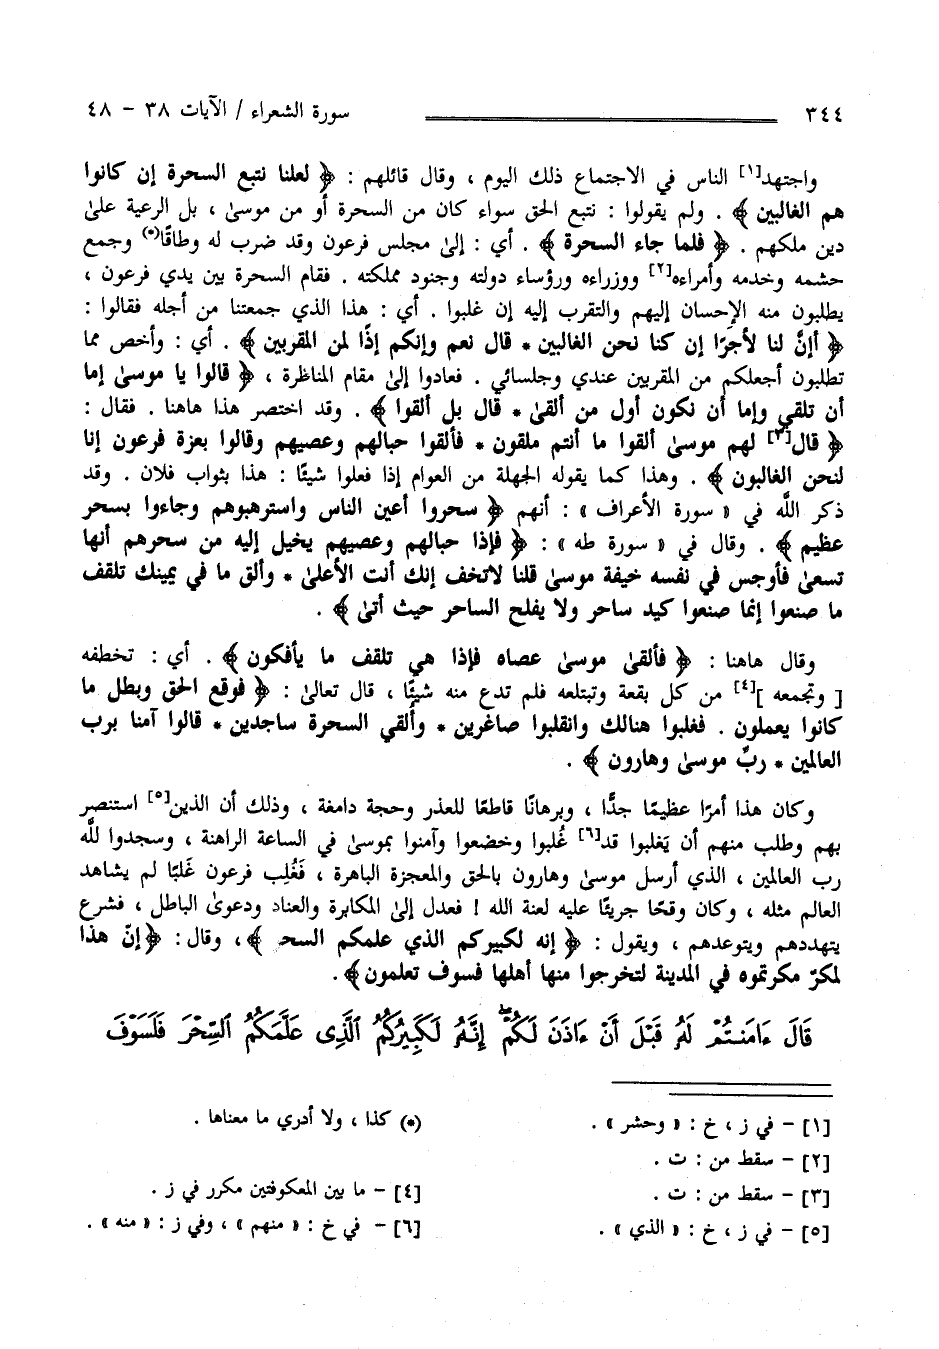 ٣٤٤ سورة الشعراء / الآيات ٣٨ - ٤٨
واجتهد[١] الناس في الاجتماع ذلك اليوم ، وقال قائلهم : ﴿ لعلنا نتبع السحرة إن كانوا
هم الغالبين ﴾ . ولم يقولوا : نتبع الحق سواء كان من السحرة أو من موسىٰ ، بل الرعية علىٰ
دين ملكهم . ﴿ فلما جاء السحرة ﴾ . أي : إلىٰ مجلس فرعون وقد ضرب له وطاقًا(*) وجمع
حشمه وخدمه وأمراءه[٢] ووزراءه ورؤساء دولته وجنود مملكته . فقام السحرة بين يدي فرعون ،
يطلبون منه الإحسان إليهم والتقرب إليه إن غلبوا . أي : هذا الذي جمعتنا من أجله فقالوا :
﴿ أإنَّ لنا لأجرًا إن كنا نحن الغالبين * قال نعم وإنكم إذًا لمن المقربين ﴾ . أي : وأخص مما
تطلبون أجعلكم من المقربين عندي وجلسائي . فعادوا إلىٰ مقام المناظرة ، ﴿ قالوا يا موسىٰ إما
أن تلقي وإما أن نكون أول من ألقىٰ * قال بل ألقوا ﴾ . وقد اختصر هذا هاهنا . فقال :
﴿ قال[٣] لهم موسىٰ ألقوا ما أنتم ملقون * فألقوا حبالهم وعصيهم وقالوا بعزة فرعون إنا
لنحن الغالبون ﴾ . وهذا كما يقوله الجهلة من العوام إذا فعلوا شيئًا : هذا بثواب فلان . وقد
ذكر اللَّه في « سورة الأعراف » : أنهم ﴿ سحروا أعين الناس واسترهبوهم وجاءوا بسحر
عظيم ﴾ . وقال في « سورة طه » : ﴿ فإذا حبالهم وعصيهم يخيل إليه من سحرهم أنها
تسعىٰ فأوجس في نفسه خيفة موسىٰ قلنا لاتخف إنك أنت الأعلىٰ * وألق ما في يمينك تلقف
ما صنعوا إنما صنعوا كيد ساحر ولا يفلح الساحر حيث أتىٰ ﴾ .
وقال هاهنا : ﴿ فألقىٰ موسىٰ عصاه فإذا هي تلقف ما يأفكون ﴾ . أي : تخطفه
[ وتجمعه ][٤] من كل بقعة وتبتلعه فلم تدع منه شيئًا ، قال تعالىٰ : ﴿ فوقع الحق وبطل ما
كانوا يعملون . فغلبوا هنالك وانقلبوا صاغرين * وأُلقي السحرة ساجدين * قالوا آمنا برب
العالمين * ربِّ موسىٰ وهارون ﴾ .
وكان هذا أمرًا عظيمًا جدًّا ، وبرهانًا قاطعًا للعذر وحجة دامغة ، وذلك أن الذين[٥] استنصر
بهم وطلب منهم أن يَغلبوا قد[٦] غُلبوا وخضعوا وآمنوا بموسىٰ في الساعة الراهنة ، وسجدوا للَّه
رب العالمين ، الذي أرسل موسىٰ وهارون بالحق والمعجزة الباهرة ، فَغُلِب فرعون غَلبًا لم يشاهد
العالم مثله ، وكان وقحًا جريئًا عليه لعنة الله ! فعدل إلىٰ المكابرة والعناد ودعوىٰ الباطل ، فشرع
يتهددهم ويتوعدهم ، ويقول : ﴿ إنه لكبيركم الذي علمكم السحر ﴾، وقال: ﴿إنّ هذا
لمكرٌ مكرتموه في المدينة لتخرجوا منها أهلها فسوف تعلمون﴾.
قَالَ ءَامَنتُمْ لَهُ قَبْلَ أَنْ ءَاذَنَ لَكُمْ إِنَّهُ لَكَبِيرُكُمُ ٱلَّذِى عَلَّمَكُمُ ٱلسِّحْرَ فَلَسَوْفَ
[١] - في ز ، خ : « وحشر » . (*) كذا ، ولا أدري ما معناها .
[٢] - سقط من : ت .
[٣] - سقط من : ت . [٤] - ما بين المعكوفتين مكرر في ز .
[٥] - في ز ، خ : « الذي » . [٦] - في خ : « منهم » ، وفي ز : « منه » .